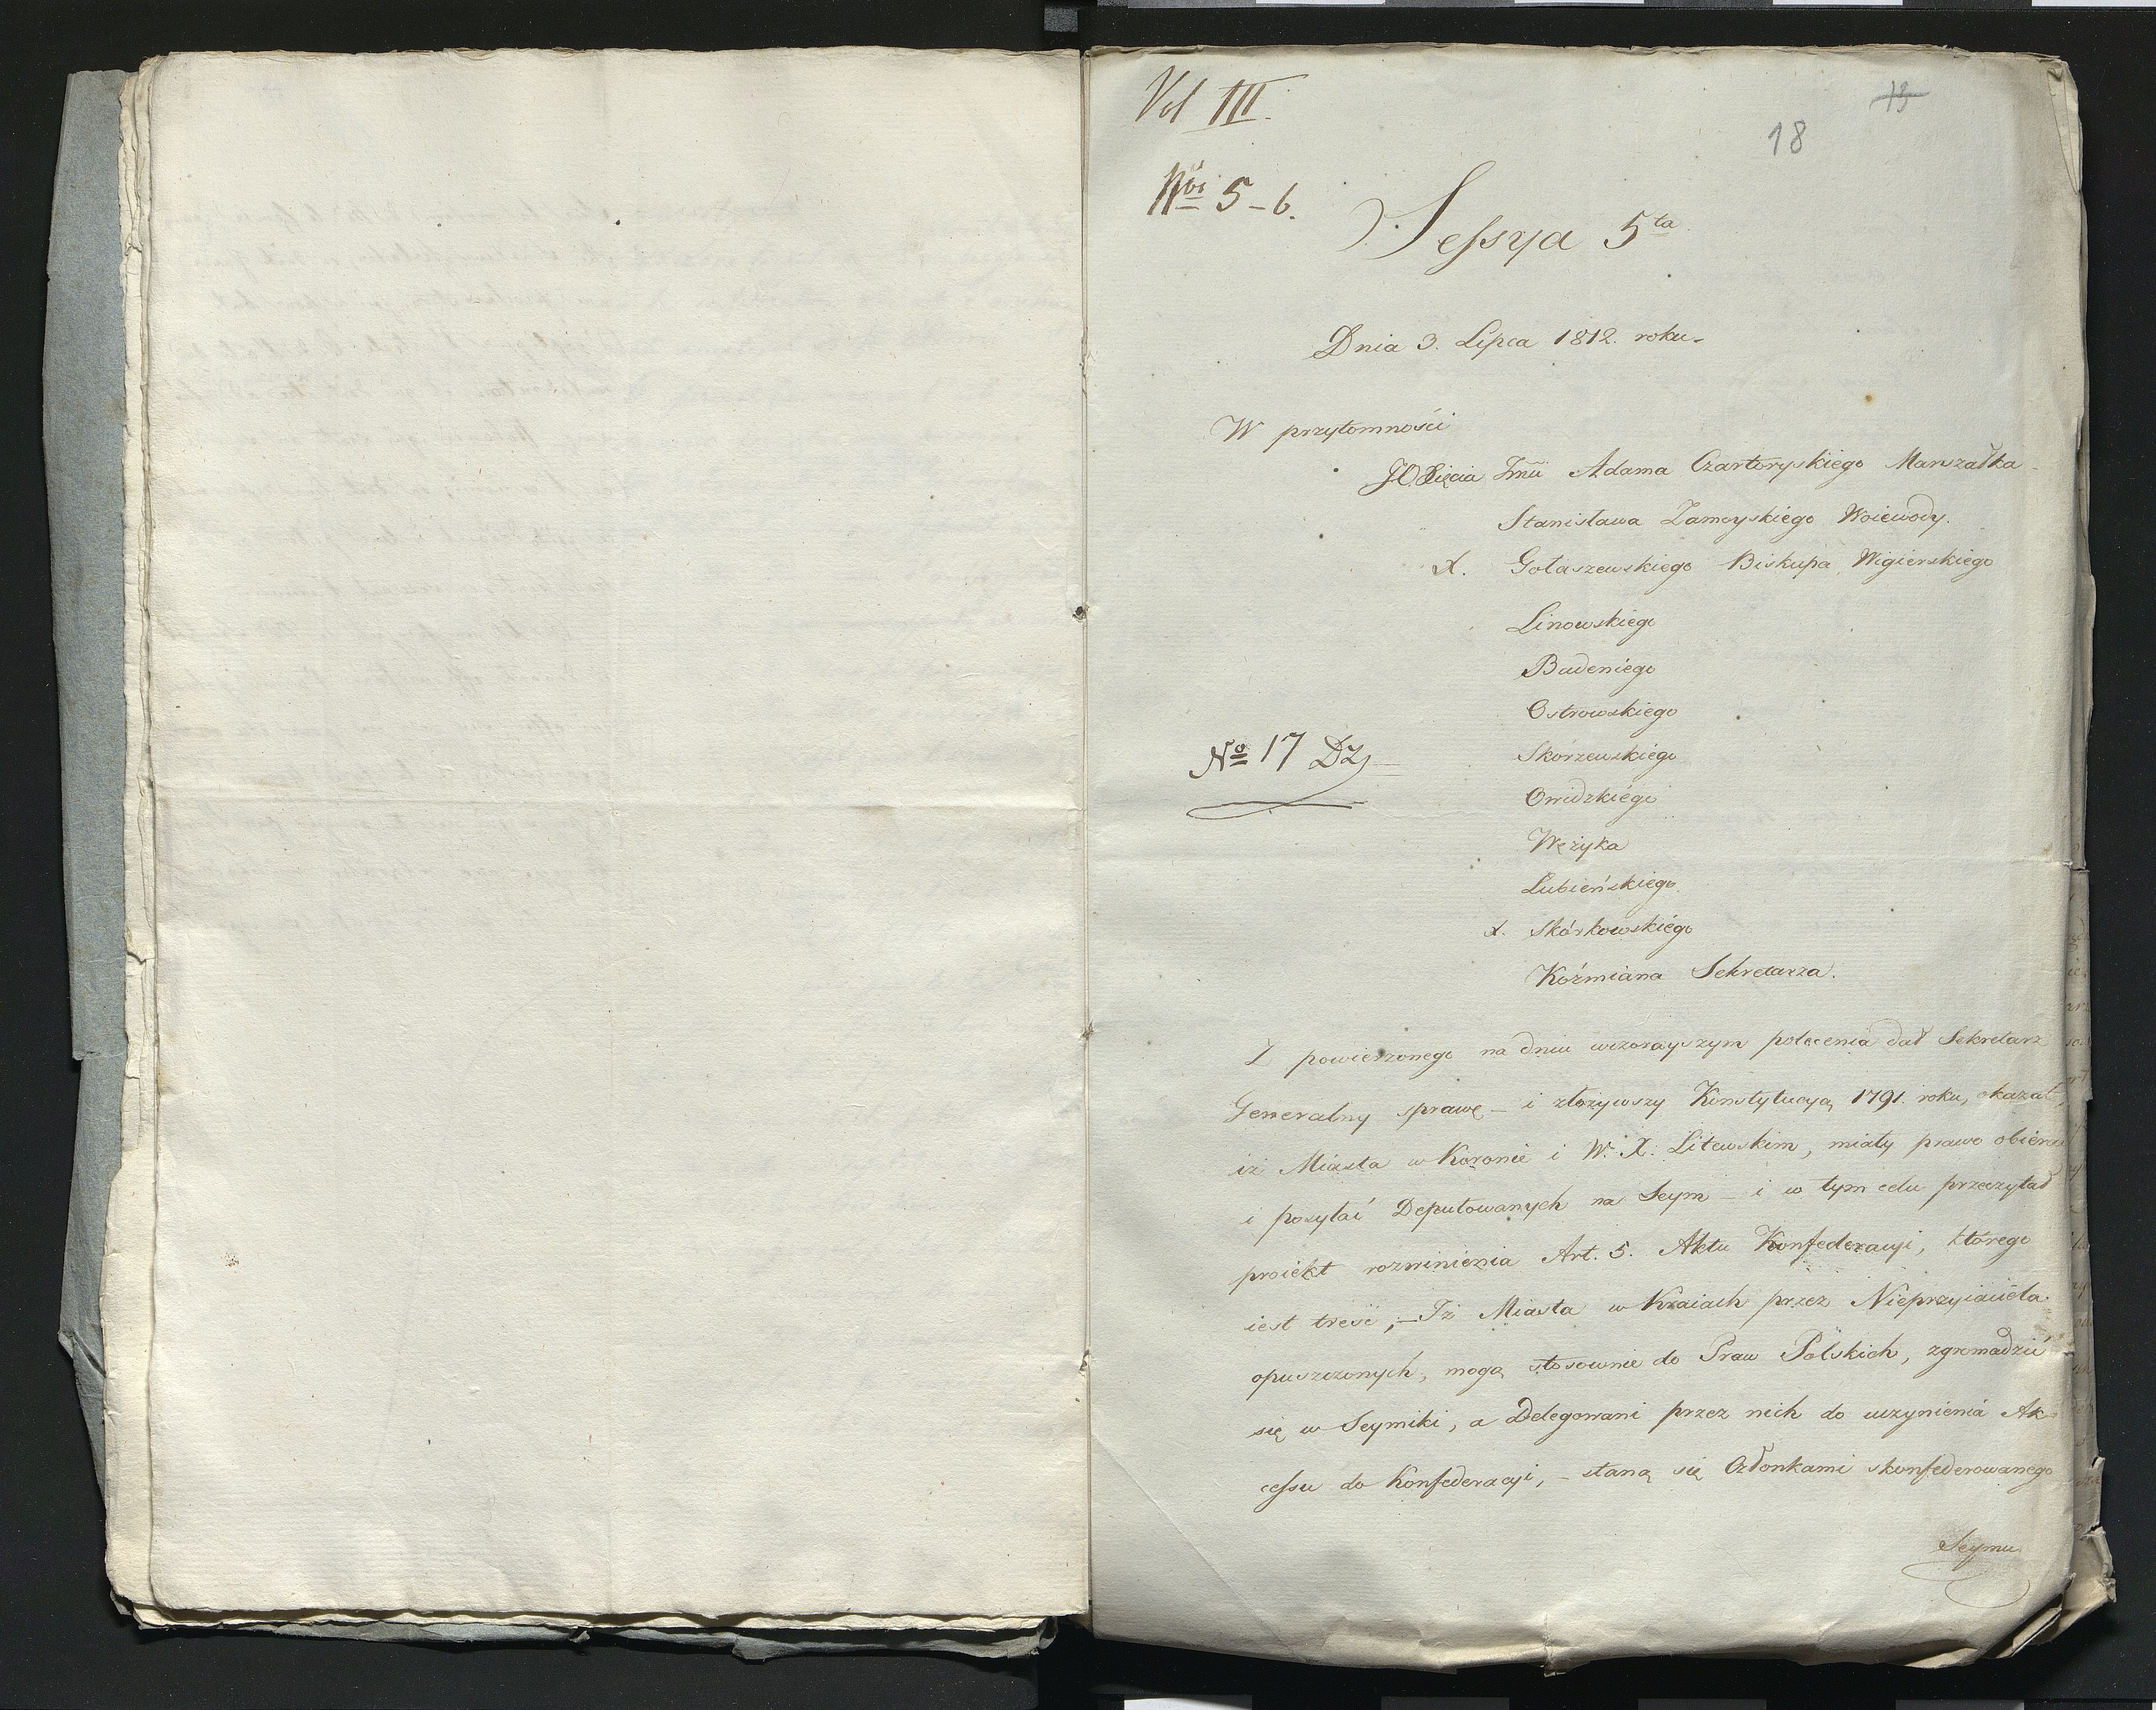 Vol III.
15
18
Nris 5-6.
Sessya 5ta
Dnia 3. Lipca 1812. roku.
W przytomności
JO. Xięcia Jmci Adama Czartoryskiego Marszałka
Stanisława Zamoyskiego Woiewody.
X. Gołaszewskiego Biskupa Wigierskiego
Linowskiego
Badeniego
Ostrowskiego
No 17 Dz
Skórzewskiego
Owidzkiégo
Wężyka
Lubieńskiego.
X. Skórkowskiégo
Koźmiana Sekretarza.
Z powierzonego na dniu wczorayszym polecenia dał Sekretarz
Generalny sprawę - i złożywszy Konstytucyą 1791. roku, okazał,
iż Miasta w Koronie i W. X. Litewskim, miały prawo obierać
i posyłać Deputowanych na Seym - i w tym celu przeczytał
proiekt rozwinienia Art. 5. Aktu Konfederacyi, którego
iest treść; - Iż Miasta w Kraiach przez Nieprzyiaciela
opuszczonych, mogą stosownie do Praw Polskich, zgromadzić
się w Seymiki, a Delegowani przez nich do uczynienia Ak-
cessu do Konfederacyi, - staną się Członkami skonfederowanego
Seymu